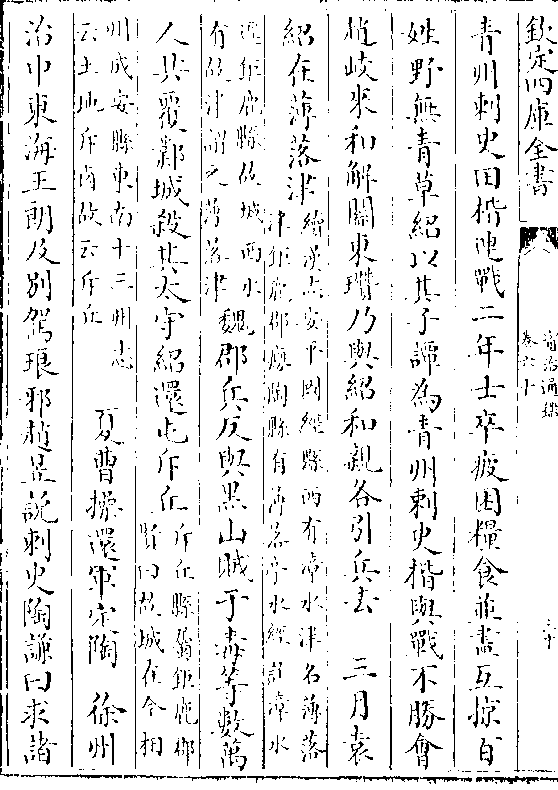 欽定四庫全書
資治通鑑
卷六十
三十
青州刺史田楷連戰二年士卒疲困糧食並盡互掠百
姓野無青草紹以其子譚為青州刺史楷與戰不勝會
趙岐來和解關東瓚乃與紹和親各引兵去　三月袁
紹在薄落津續漢志安平國經縣西有漳水津名薄落
津鉅鹿郡廮陶縣有薄落亭水經註漳水
逕鉅鹿縣故城西水
有故津謂之薄落津魏郡兵反與黑山賊于毒等數萬
人共覆鄴城殺其太守紹還屯斥丘斥丘縣屬鉅鹿郡
賢曰故城在今相
州成安縣東南十三州志
云土地斥鹵故云斥丘　夏曹操還軍定陶　徐州
治中東海王朗及別駕琅邪趙昱說刺史陶謙曰求諸